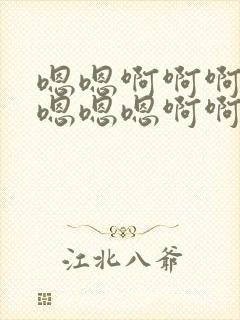 嗯嗯啊啊啊
嗯嗯嗯啊啊
江北八爷